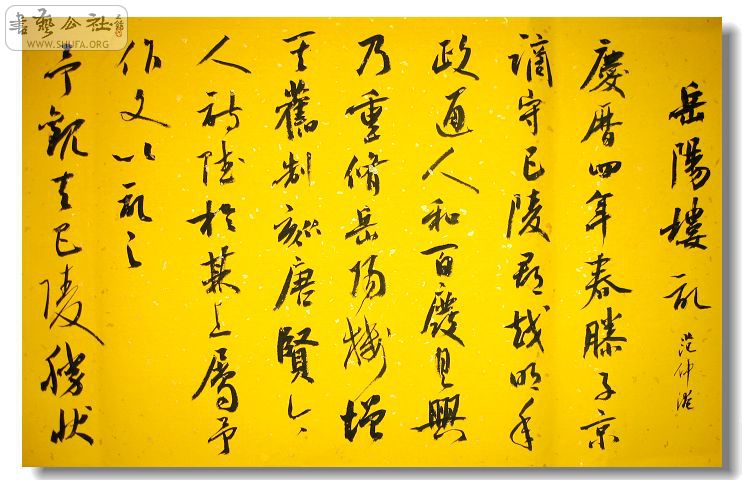 岳陽樓記
范仲淹
慶曆四年春滕子京
謫守巴陵郡越明年
政通人和百廢具興
乃重脩岳陽樓增
其舊制刻唐賢今
人詩賦於其上屬予
作文以記之
予觀夫巴陵勝狀
書藝公社
WWW.SHUFA.ORG